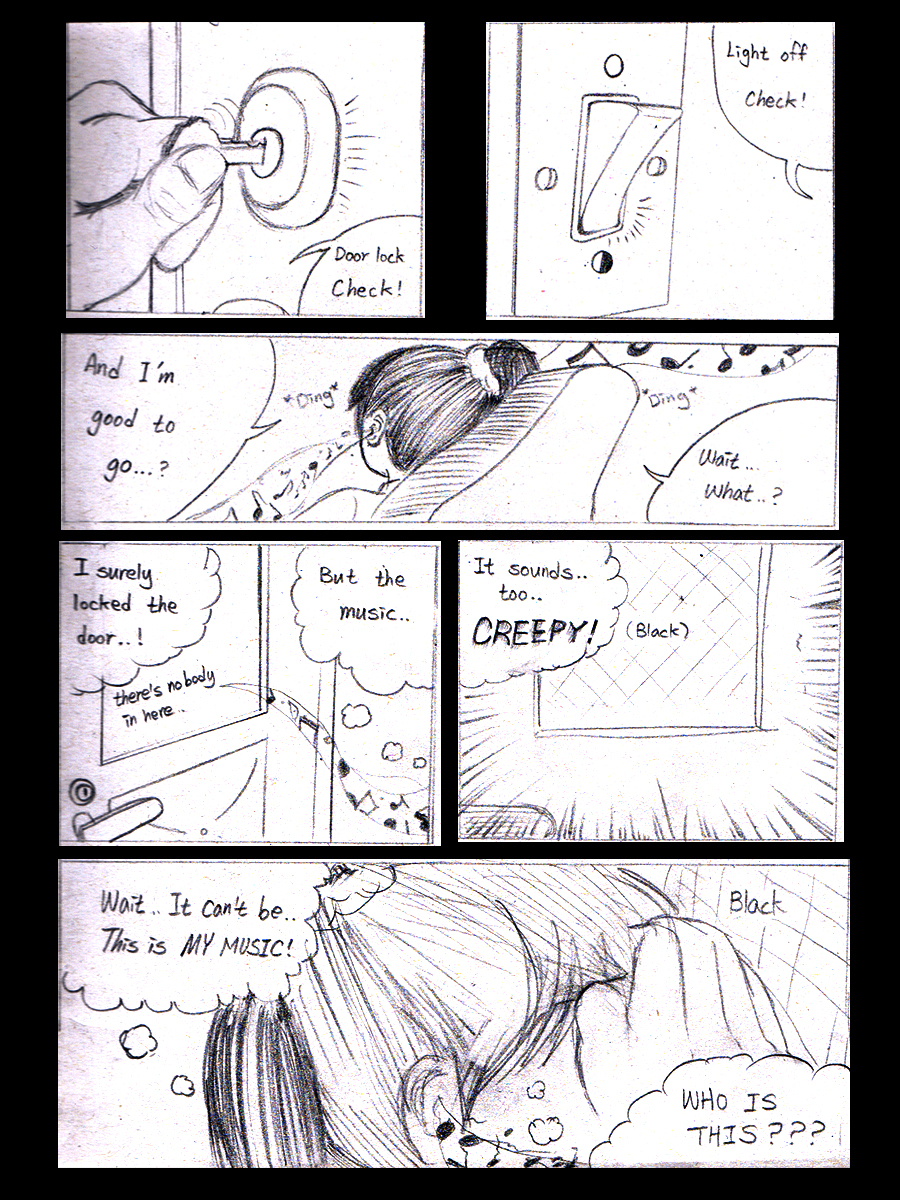 Door lock
Check!
Light off
Check!
And I'm
good to
go...?
*Ding*
*Ding*
Wait...
What..?
I surely
locked the
door..!
there's nobody
in here..
But the
music..
It sounds..
too..
CREEPY!
(Black)
Wait.. It can't be..
This is MY MUSIC!
Black
WHO IS
THIS???